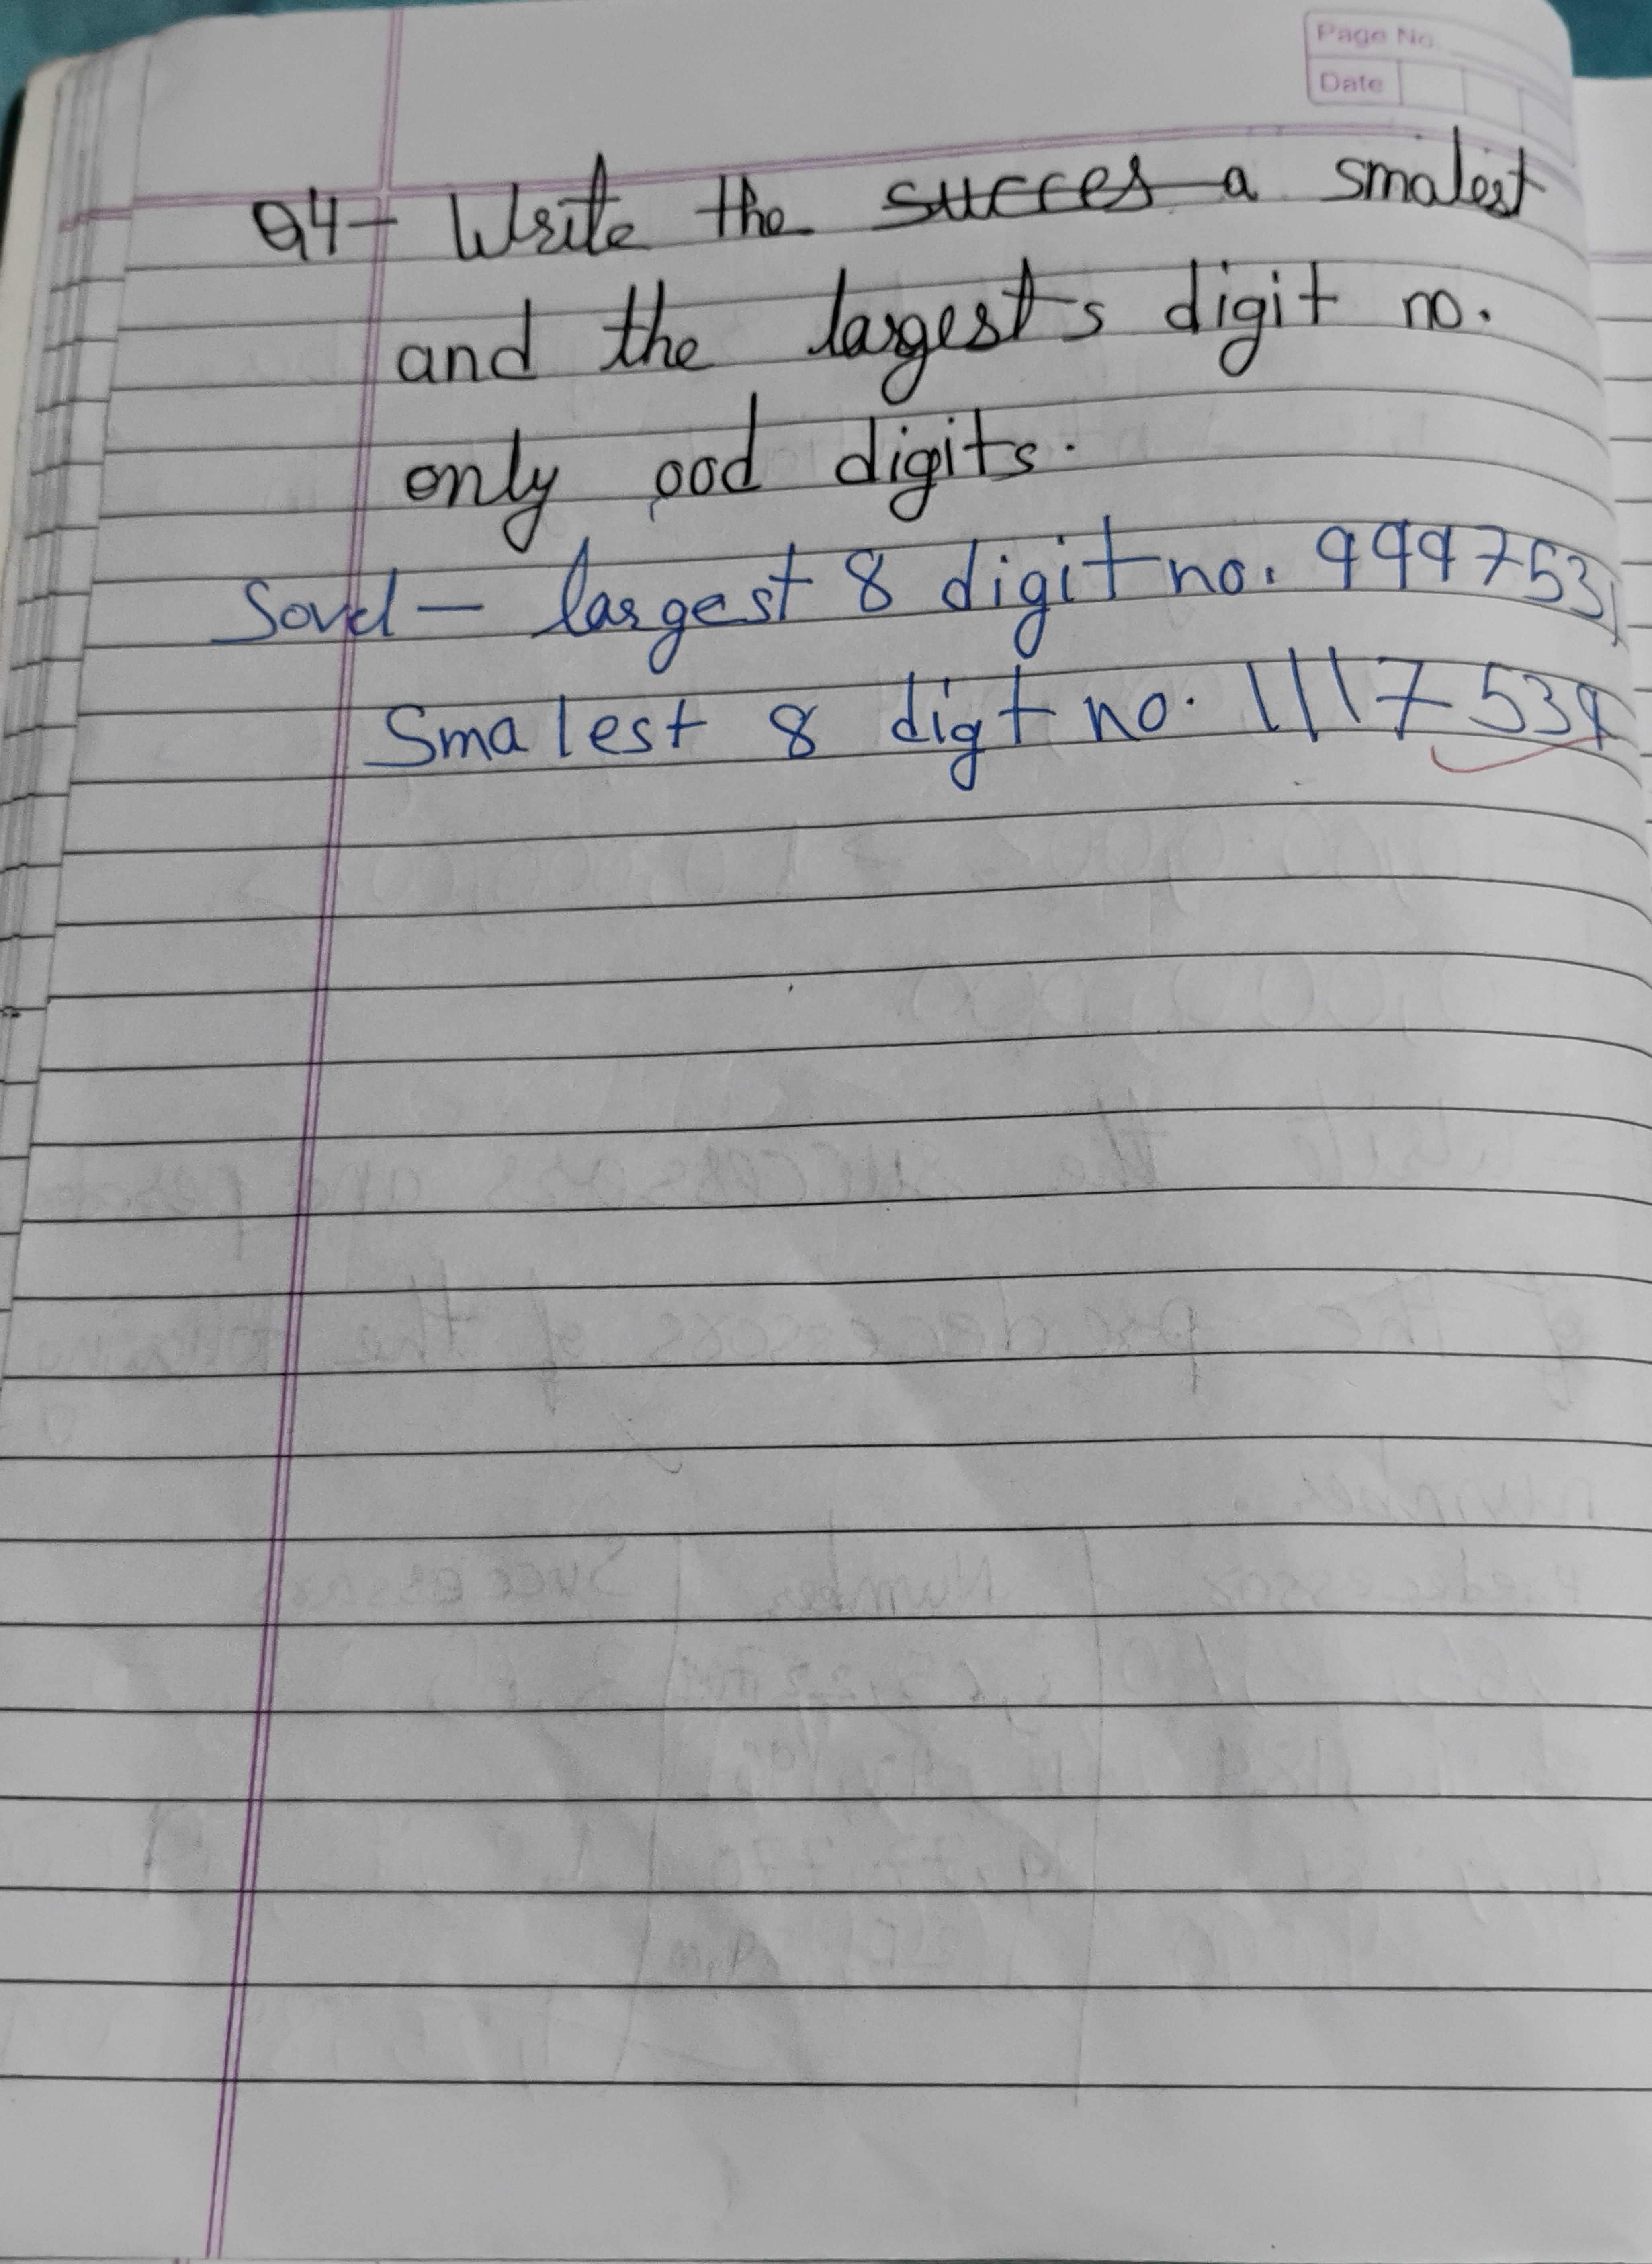 Page No.
Date
Q4- Write the succes a smalest
and the largest s digit no.
only ood digits.
Sovel - largest 8 digit no. 9997531
Smalest 8 digt no. 111753